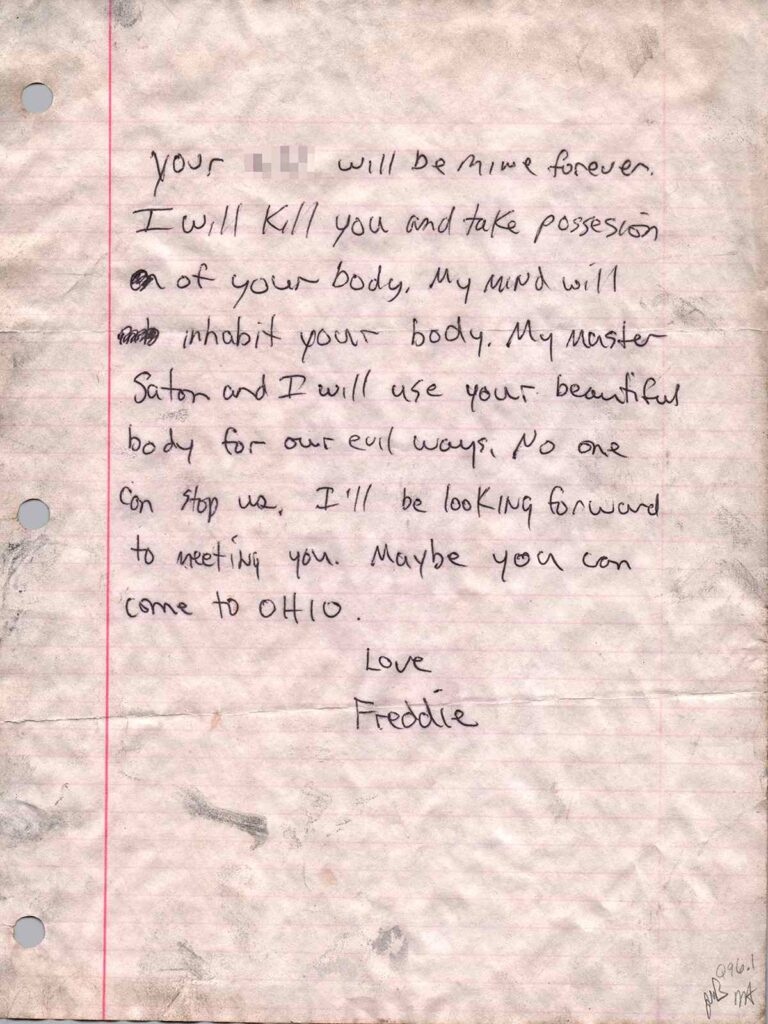 your will be mine forever.
I will Kill you and take possesion
of your body. My MiNd will
inhabit your body. My master
Saton and I will use your beautiful
body for our evil ways. No one
can stop us. I'll be looKiNg forward
to meeting you. Maybe you can
come to OHIO.
Love
Freddie
Q96.1